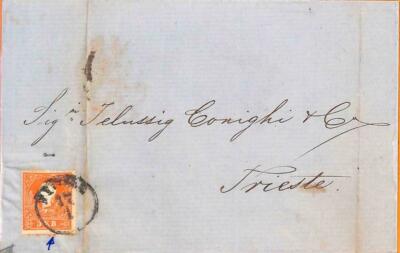 Sigri Telussig Conighi & Co
Trieste.